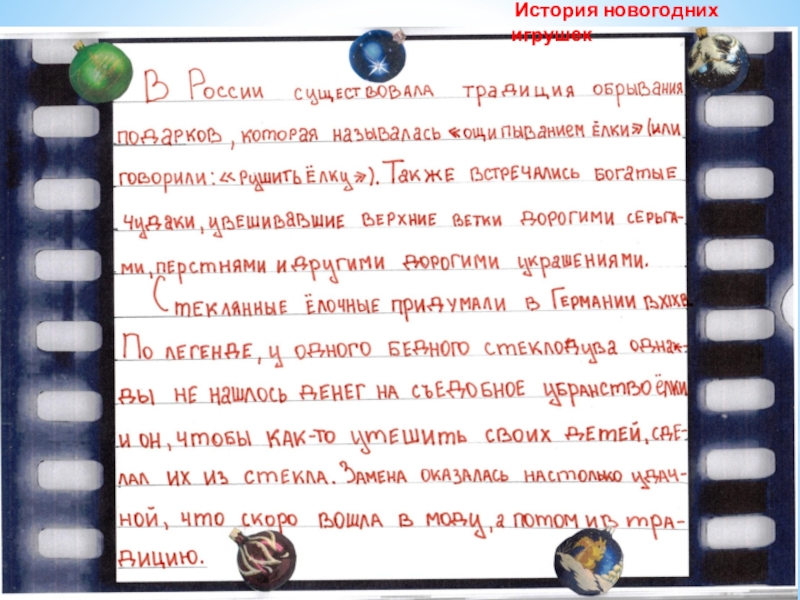 История новогодних
игрушек
В России существовала традиция обрывания
подарков, которая называлась «ощипыванием ёлки» (или
говорили: «рушить ёлку»). Также встречались богатые
чудаки, увешивавшие верхние ветки дорогими серьга-
ми, перстнями и другими дорогими украшениями.
Стеклянные ёлочные придумали в Германии в XIX в.
По легенде, у одного бедного стеклодува однаж-
ды не нашлось денег на съедобное убранство ёлки
и он, чтобы как-то утешить своих детей, сде-
лал их из стекла. Замена оказалась настолько удач-
ной, что скоро вошла в моду, а потом и в тра-
дицию.